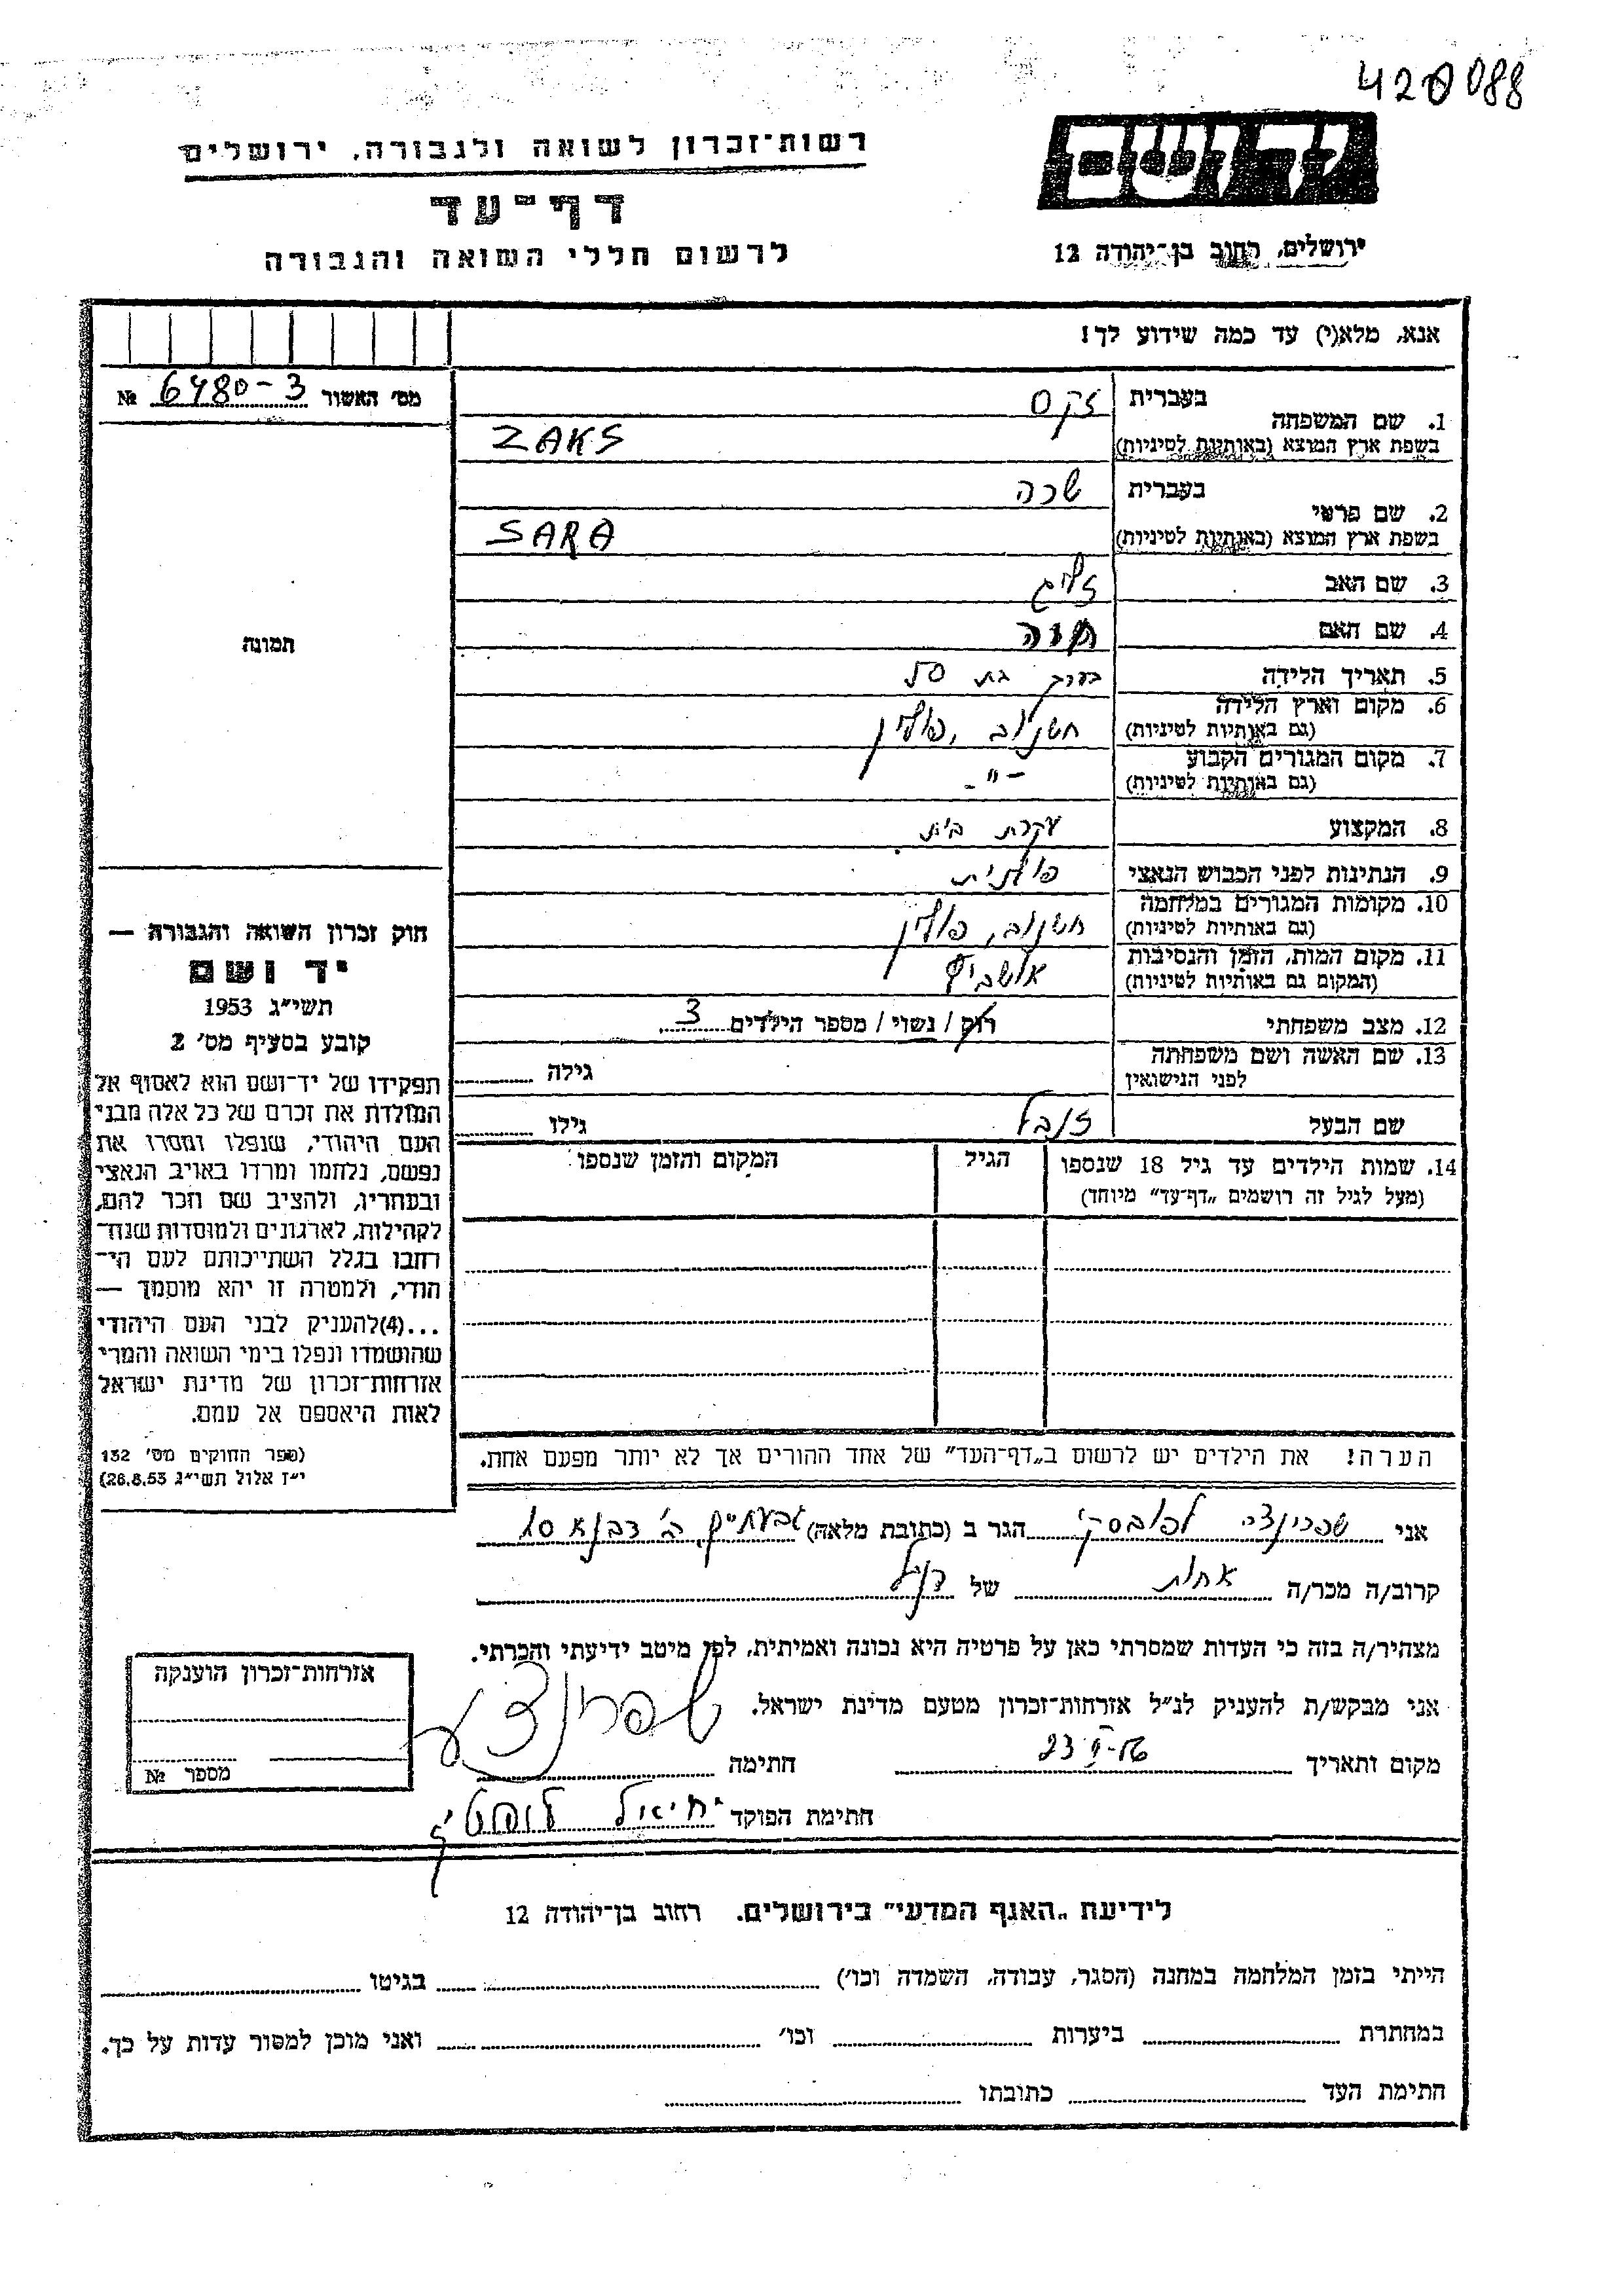 420088
יד ושם
רשות־זכרון לשואה ולגבורה, ירושלים
דף־עד
ירושלים, רחוב בן־יהודה 12
לרשום חללי השואה והגבורה
אנא, מלא(י) עד כמה שידוע לך!
מס׳ האשור 6480-3 №
תמונה
1. שם המשפחה
בעברית זקס
בשפת ארץ המוצא (באותיות לטיניות) ZAKS
2. שם פרטי
בעברית שרה
בשפת ארץ המוצא (באותיות לטיניות) SARA
3. שם האב זליג
4. שם האם
5. תאריך הלידה בערך בת 50
6. מקום וארץ הלידה
(גם באותיות לטיניות) חשנוב, פולין
7. מקום המגורים הקבוע
(גם באותיות לטיניות) -"-
8. המקצוע עקרת בית
9. הנתינות לפני הכבוש הנאצי פולנית
10. מקומות המגורים במלחמה
(גם באותיות לטיניות) חשנוב, פולין
11. מקום המות, הזמן והנסיבות
(המקום גם באותיות לטיניות) אושביץ
12. מצב משפחתי רוק / נשוי / מספר הילדים 3
13. שם האשה ושם משפחתה
לפני הנישואין גילה
שם הבעל גילו
14. שמות הילדים עד גיל 18 שנספו
(מעל לגיל זה רושמים „דף־עד״ מיוחד)
הגיל
המקום והזמן שנספו
הערה! את הילדים יש לרשום ב„דף־העד״ של אחד ההורים אך לא יותר מפעם אחת.
חוק זכרון השואה והגבורה —
יד ושם
תשי״ג 1953
קובע בסעיף מס׳ 2
תפקידו של יד־ושם הוא לאסוף אל
המולדת את זכרם של כל אלה מבני
העם היהודי, שנפלו ומסרו את
נפשם, נלחמו ומרדו באויב הנאצי
ובעוזריו, ולהציב שם וזכר להם,
לקהילות, לארגונים ולמוסדות שנח־
רחבו בגלל השתייכותם לעם הי־
הודי, ולמטרה זו יהא מוסמך —
...(4)להעניק לבני העם היהודי
שהושמדו ונפלו בימי השואה והמרי
אזרחות־זכרון של מדינת ישראל
לאות היאספם אל עמם.
(ספר החוקים מס׳ 132
י״ז אלול תשי״ג 26.8.53)
אני שפרינצה הגר ב (כתובת מלאה) גבעתיים
קרוב/ה מכר/ה אחות של
מצהיר/ה בזה כי העדות שמסרתי כאן על פרטיה היא נכונה ואמיתית, לפי מיטב ידיעתי והכרתי.
אני מבקש/ת להעניק לנ״ל אזרחות־זכרון מטעם מדינת ישראל.
מקום ותאריך חתימה
חתימת הפוקד יחיאל
אזרחות־זכרון הוענקה
מספר №
לידיעת „האגף המדעי״ בירושלים. רחוב בן־יהודה 12
הייתי בזמן המלחמה במחנה (הסגר, עבודה, השמדה וכו׳) בגיטו
במחתרת ביערות וכו׳ ואני מוכן למסור עדות על כך.
חתימת העד כתובתו